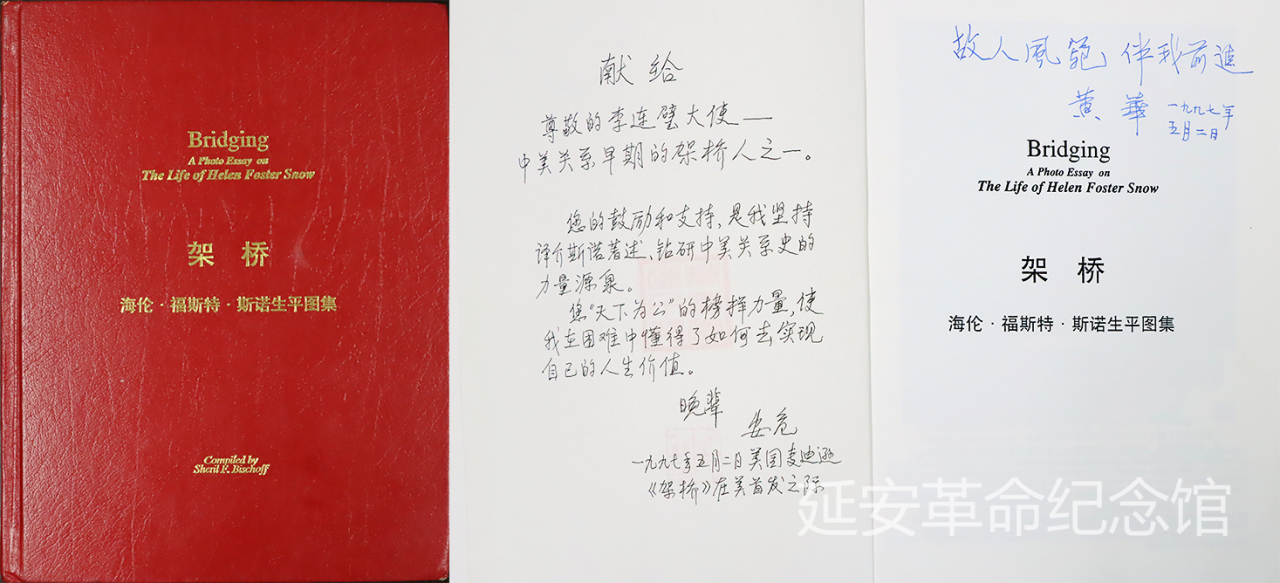 Bridging
A Photo Essay on
The Life of Helen Foster Snow
架 桥
海伦·福斯特·斯诺生平图集
Compiled by
Sheril F. Bischoff
献 给
尊敬的李连璧大使——
中美关系早期的架桥人之一。
您的鼓励和支持,是我坚持
译介斯诺著述、钻研中美关系史的
力量源泉。
您“天下为公”的榜样力量,使
我在困难中懂得了如何去实现
自己的人生价值。
晚辈
安危
一九九七年五月二日美国麦迪逊
《架桥》在美首发之际
故人風範 伴我前進
黄 華 一九九七年
五月二日
Bridging
A Photo Essay on
The Life of Helen Foster Snow
架 桥
海伦·福斯特·斯诺生平图集
延安革命纪念馆